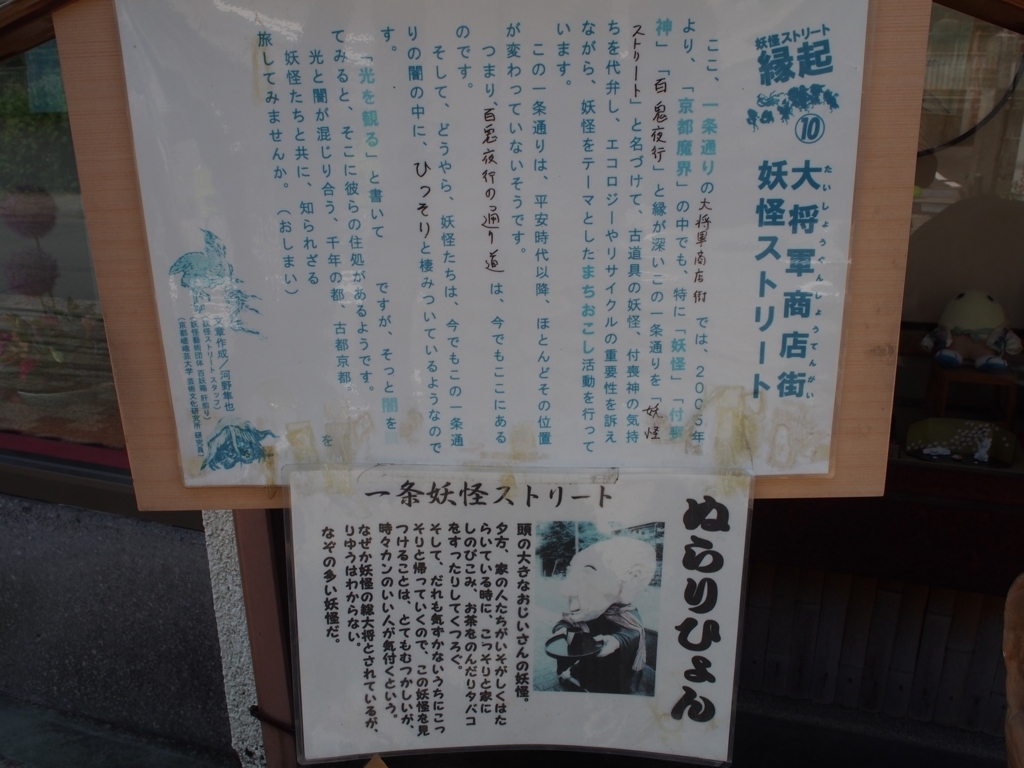 妖怪ストリート
縁起
⑩
大将軍商店街
たいしょうぐんしょうてんがい
妖怪ストリート
ここ、一条通りの大将軍商店街では、2005年
より、「京都魔界」の中でも、特に「妖怪」「付喪
神」「百鬼夜行」と縁が深いこの一条通りを「妖怪
ストリート」と名づけて、古道具の妖怪、付喪神の気持
ちを代弁し、エコロジーやリサイクルの重要性を訴え
ながら、妖怪をテーマとしたまちおこし活動を行って
います。
この一条通りは、平安時代以降、ほとんどその位置
が変わっていないそうです。
つまり、百鬼夜行の通り道は、今でもここにある
のです。
そして、どうやら、妖怪たちは、今でもこの一条通
りの闇の中に、ひっそりと棲みついているようなので
す。
「光を観る」と書いて
ですが、そっと闇を
てみると、そこに彼らの住処があるようです。
光と闇が混じり合う、千年の都、古都京都
を
妖怪たちと共に、知られざる
旅してみませんか。（おしまい）
文章作成／河野隼也
（妖怪ストリートスタッフ）
（妖怪藝術団体 百妖箱 肝煎り）
（京都嵯峨芸術大学 芸術文化研究所 研究員）
一条妖怪ストリート
ぬらりひょん
頭の大きなおじいさんの妖怪。
夕方、家の人たちがいそがしくはた
らいている時に、こっそりと家に
しのびこみ、お茶をのんだりタバコ
をすったりしてくつろぐ。
そして、だれも気ずかないうちにこっ
そりと帰っていくので、この妖怪を見
つけることは、とてもむつかしいが、
時々カンのいい人が気付くという。
なぜか妖怪の総大将とされているが、
りゆうはわからない。
なぞの多い妖怪だ。